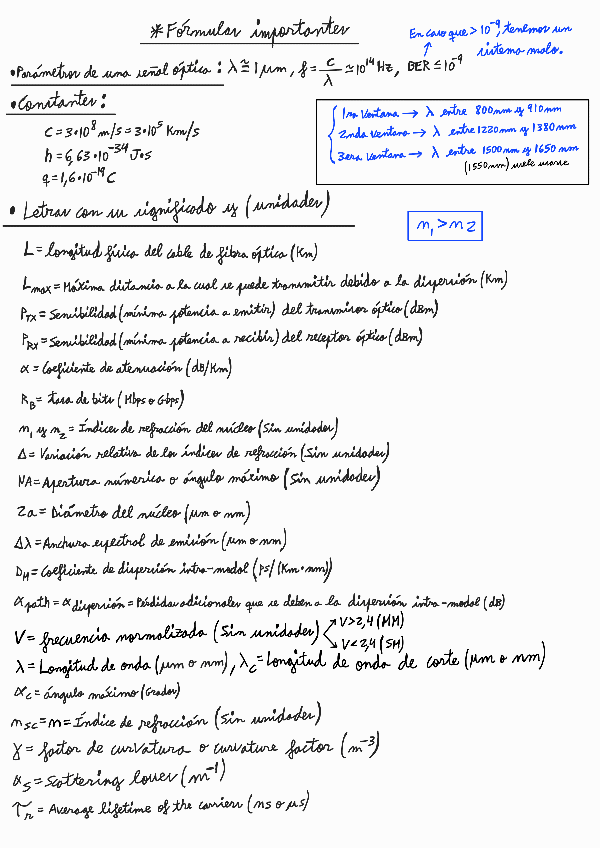 * Fórmulas importantes
En caso que > 10⁻⁹, tenemos un
sistema malo.
• Parámetros de una señal óptica: λ ≅ 1 μm, f = c/λ ≃ 10¹⁴ Hz, BER ≤ 10⁻⁹
• Constantes:
c = 3·10⁸ m/s = 3·10⁵ Km/s
h = 6,63·10⁻³⁴ J·s
q = 1,6·10⁻¹⁹ C
1ra Ventana → λ entre 800nm y 910nm
2nda Ventana → λ entre 1220nm y 1380nm
3era Ventana → λ entre 1500nm y 1650nm
(1550nm) suele usarse
• Letras con su significado y (unidades)
n₁ > n₂
L = Longitud física del cable de fibra óptica (Km)
Lmax = Máxima distancia a la cual se puede transmitir debido a la dispersión (Km)
PTX = Sensibilidad (mínima potencia a emitir) del transmisor óptico (dBm)
PRX = Sensibilidad (mínima potencia a recibir) del receptor óptico (dBm)
α = Coeficiente de atenuación (dB/Km)
RB = tasa de bits (Mbps o Gbps)
n₁ y n₂ = Índices de refracción del núcleo (Sin unidades)
Δ = Variación relativa de los índices de refracción (Sin unidades)
NA = Apertura númerica o ángulo máximo (Sin unidades)
2a = Diámetro del núcleo (μm o nm)
Δλ = Anchura espectral de emisión (μm o nm)
DM = Coeficiente de dispersión intra-modal (ps/(Km·nm))
αpath = αdispersión = Pérdidas adicionales que se deben a la dispersión intra-modal (dB)
V = frecuencia normalizada (Sin unidades) V>2,4 (MM)
V<2,4 (SM)
λ = Longitud de onda (μm o nm), λc = Longitud de onda de corte (μm o nm)
αc = ángulo máximo (Grados)
nsc = n = Índice de refracción (Sin unidades)
γ = factor de curvatura o curvature factor (m⁻³)
αs = Scattering losses (m⁻¹)
τr = Average lifetime of the carriers (ns o μs)